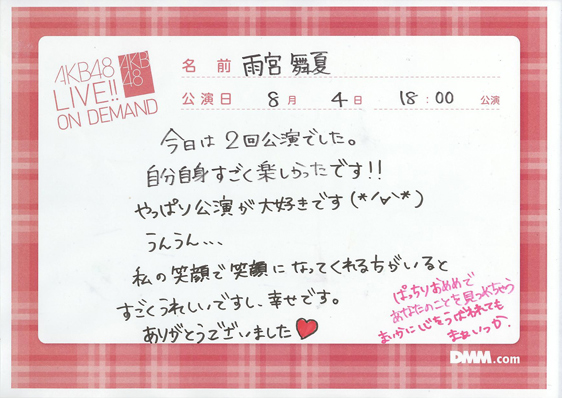 AKB48
LIVE!!
ON DEMAND
AKB
48
名 前 雨宮 舞夏
公演日 8月 4日 18:00 公演
今日は2回公演でした。
自分自身すごく楽しかったです!!
やっぱり公演が大好きです(*/∀\*)
うんうん...
私の笑顔で笑顔になってくれる方がいると
すごくうれしいですし、幸せです。
ありがとうございました♥
ぱっちりおめめで
あなたのことを見つめちゃう
まなかに心をうばわれても
まぁいっか。
DMM.com